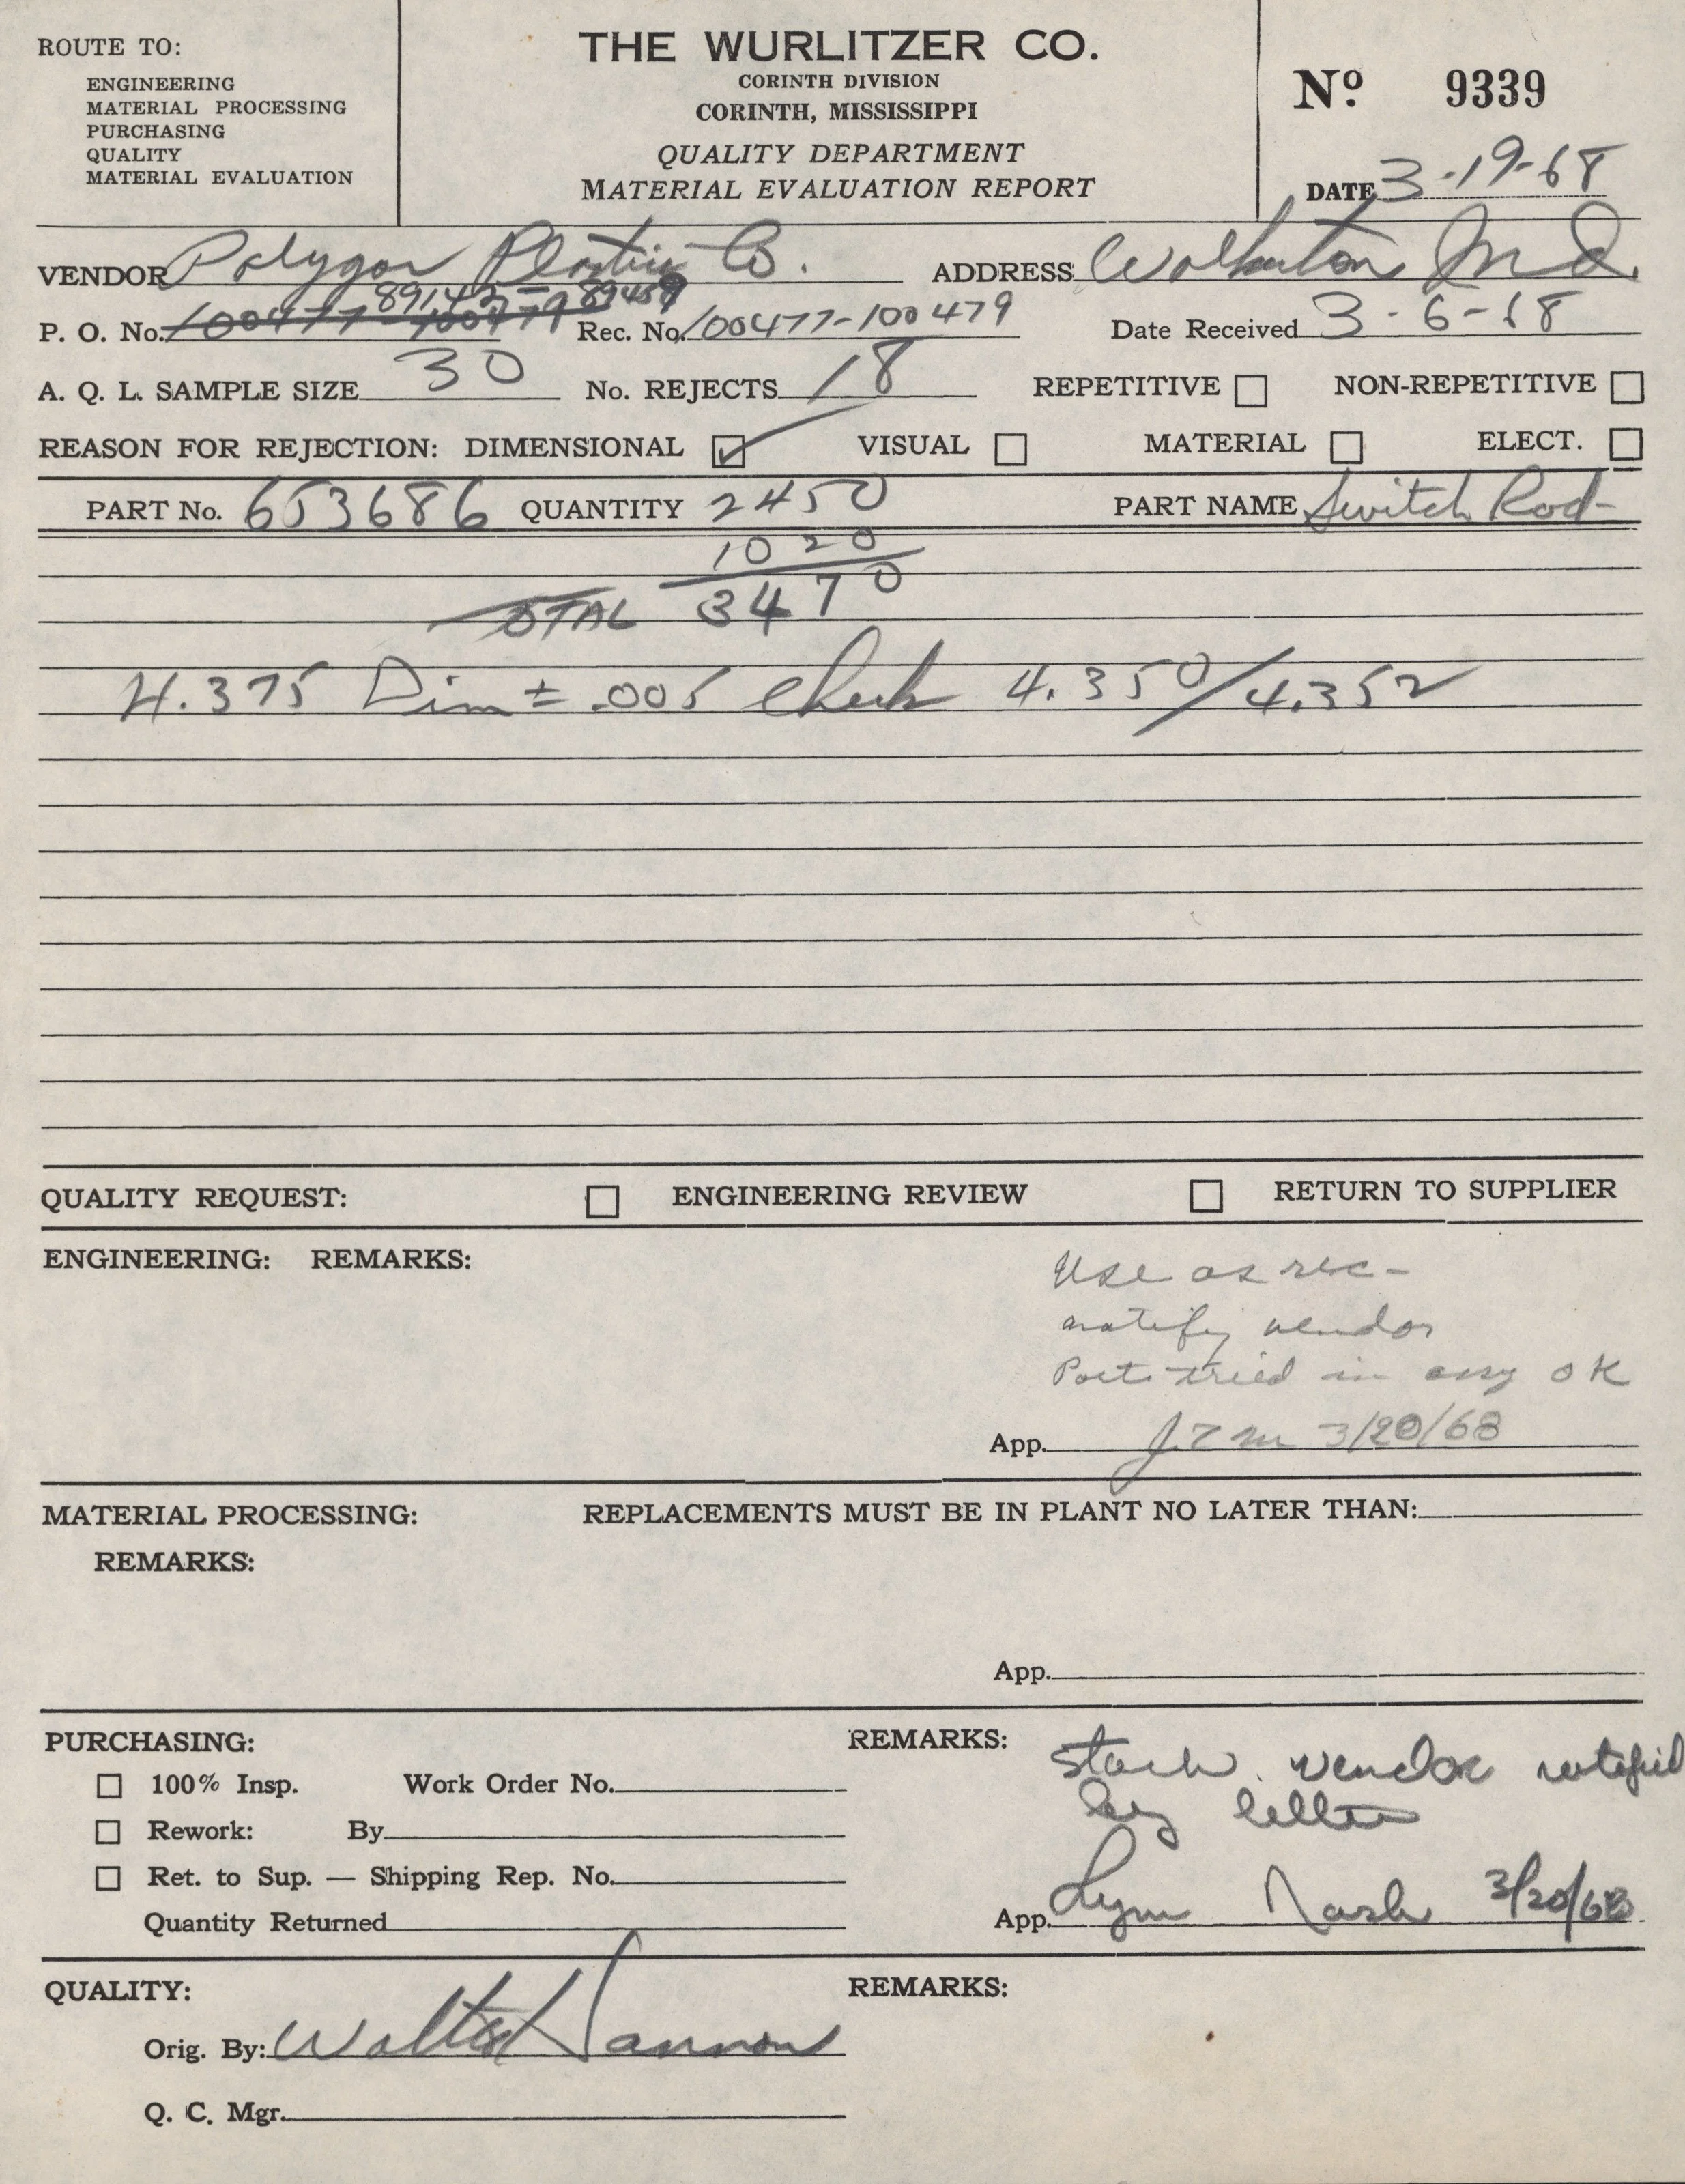 ROUTE TO:
ENGINEERING
MATERIAL PROCESSING
PURCHASING
QUALITY
MATERIAL EVALUATION
THE WURLITZER CO.
CORINTH DIVISION
CORINTH, MISSISSIPPI
QUALITY DEPARTMENT
MATERIAL EVALUATION REPORT
No 9339
DATE 3-19-68
VENDOR Polygon Plastic Co. ADDRESS Walkerton Ind.
89143-89459
P. O. No. 100477-100479 Rec. No. 100477-100479 Date Received 3-6-68
A. Q. L. SAMPLE SIZE 30 No. REJECTS 18 REPETITIVE NON-REPETITIVE
REASON FOR REJECTION: DIMENSIONAL VISUAL MATERIAL ELECT.
PART No. 653686 QUANTITY 2450 PART NAME Switch Rod-
1020
TOTAL 3470
4.375 Dim ± .005 check 4.350/4.352
QUALITY REQUEST: ENGINEERING REVIEW RETURN TO SUPPLIER
ENGINEERING: REMARKS:
Use as rec-
notify vendor
Parts tried in assy OK
App. 3/20/68
MATERIAL PROCESSING: REPLACEMENTS MUST BE IN PLANT NO LATER THAN:
REMARKS:
App.
PURCHASING: REMARKS:
100% Insp. Work Order No.
Rework: By
Ret. to Sup. — Shipping Rep. No.
Quantity Returned
Stock. vendor notified
by letter
App. Lynn Nash 3/20/68
QUALITY: REMARKS:
Orig. By: Walter Hannon
Q. C. Mgr.